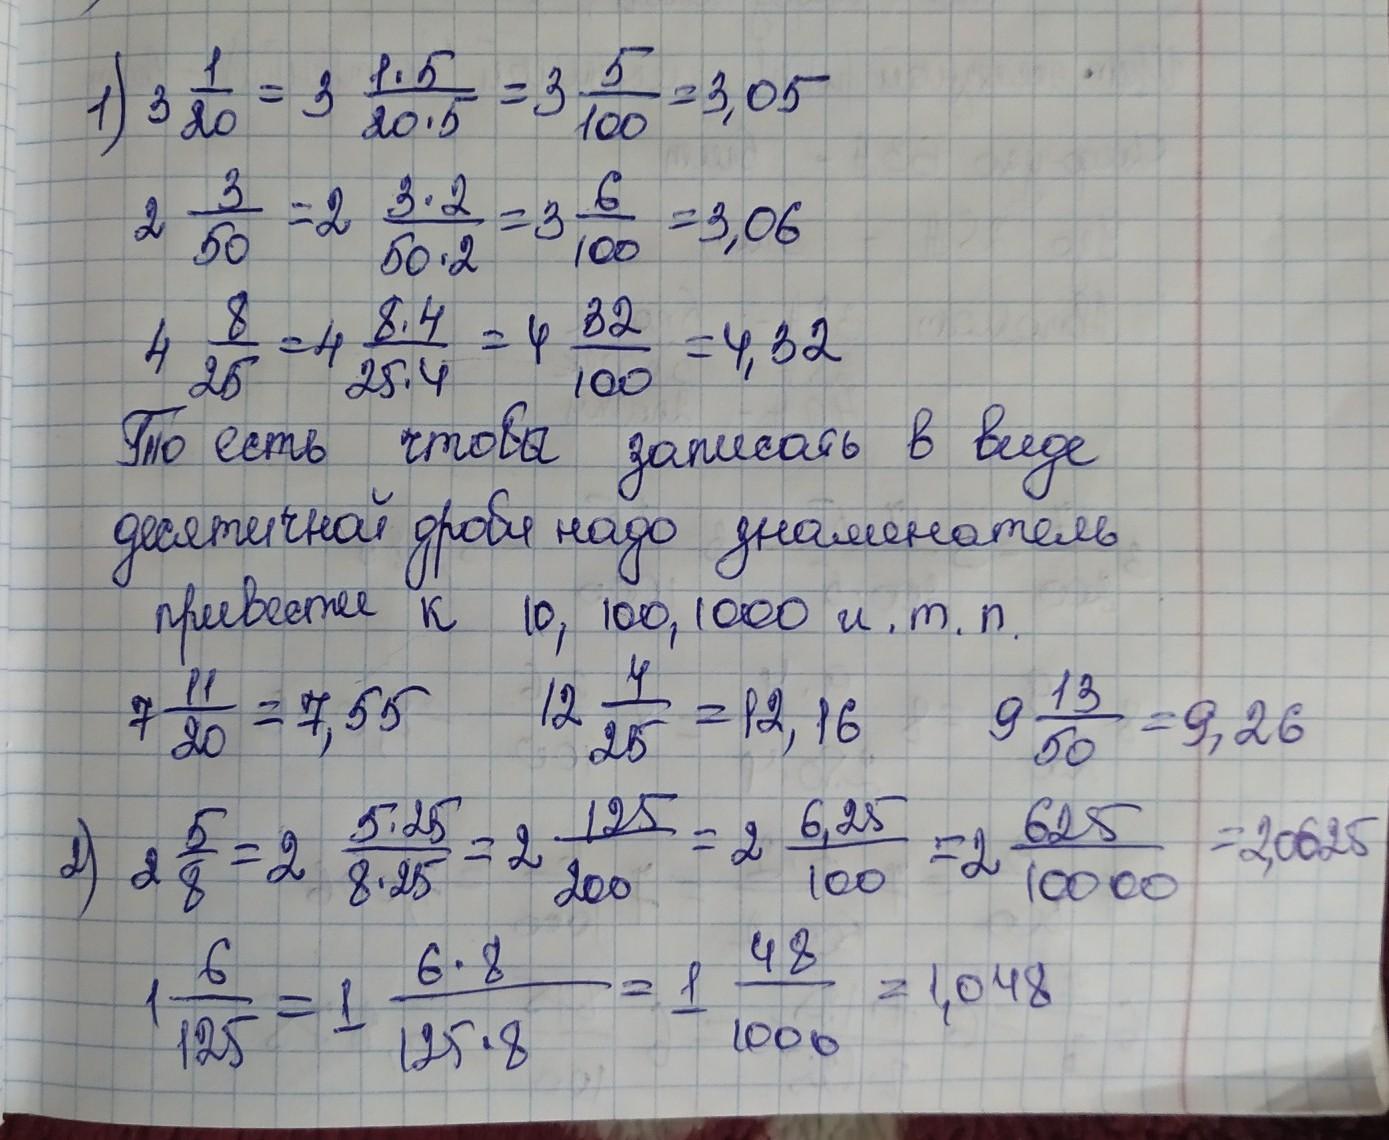 1) 3 1/20 = 3 1·5/20·5 = 3 5/100 = 3,05
2 3/50 = 2 3·2/50·2 = 3 6/100 = 3,06
4 8/25 = 4 8·4/25·4 = 4 32/100 = 4,32
То есть чтобы записать в виде
десятичной дроби надо знаменатель
привести к 10, 100, 1000 и. т. п.
7 11/20 = 7,55 12 4/25 = 12,16 9 13/50 = 9,26
2) 2 5/8 = 2 5·25/8·25 = 2 125/200 = 2 6,25/100 = 2 625/10000 = 2,0625
1 6/125 = 1 6·8/125·8 = 1 48/1000 = 1,048